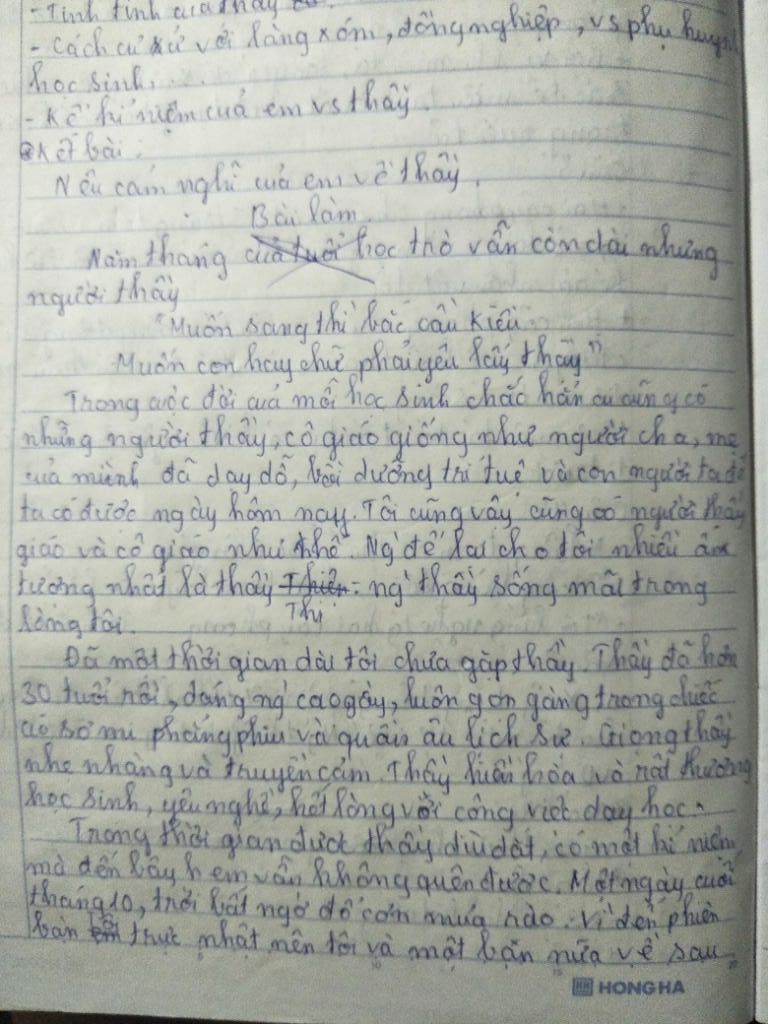 - Tính tình của thầy
- Cách cư xử với làng xóm, đồng nghiệp, vs phụ huynh
học sinh.
- Kể kỉ niệm của em vs thầy.
Kết bài:
Nêu cảm nghĩ của em về thầy.
Bài làm.
Năm tháng của tuổi học trò vẫn còn dài nhưng
người thầy
"Muốn sang thì bắc cầu Kiều
Muốn con hay chữ phải yêu lấy thầy"
Trong cuộc đời của mỗi học sinh chắc hẳn ai cũng có
những người thầy, cô giáo giống như người cha, mẹ
của mình đã dạy dỗ, bồi dưỡng trí tuệ và con người ta để
ta có được ngày hôm nay. Tôi cũng vậy cũng có người thầy
giáo và cô giáo như thế. Ng' để lại cho tôi nhiều ấn
tượng nhất là thầy Thiên: ng' thầy sống mãi trong
Thị
lòng tôi.
Đã một thời gian dài tôi chưa gặp thầy. Thầy đã hơn
30 tuổi rồi, dáng ng' cao gầy, luôn gọn gàng trong chiếc
áo sơ mi phẳng phiu và quần âu lịch sự. Giọng thầy
nhẹ nhàng và truyền cảm. Thầy hiền hòa và rất thương
học sinh, yêu nghề, hết lòng với công việc dạy học.
Trong thời gian được thầy dìu dắt, có một kỉ niệm
mà đến bây h em vẫn không quên được. Một ngày cuối
tháng 10, trời bất ngờ đổ cơn mưa rào. Vì đến phiên
bàn trực nhật nên tôi và một bạn nữa về sau.
HONG HA